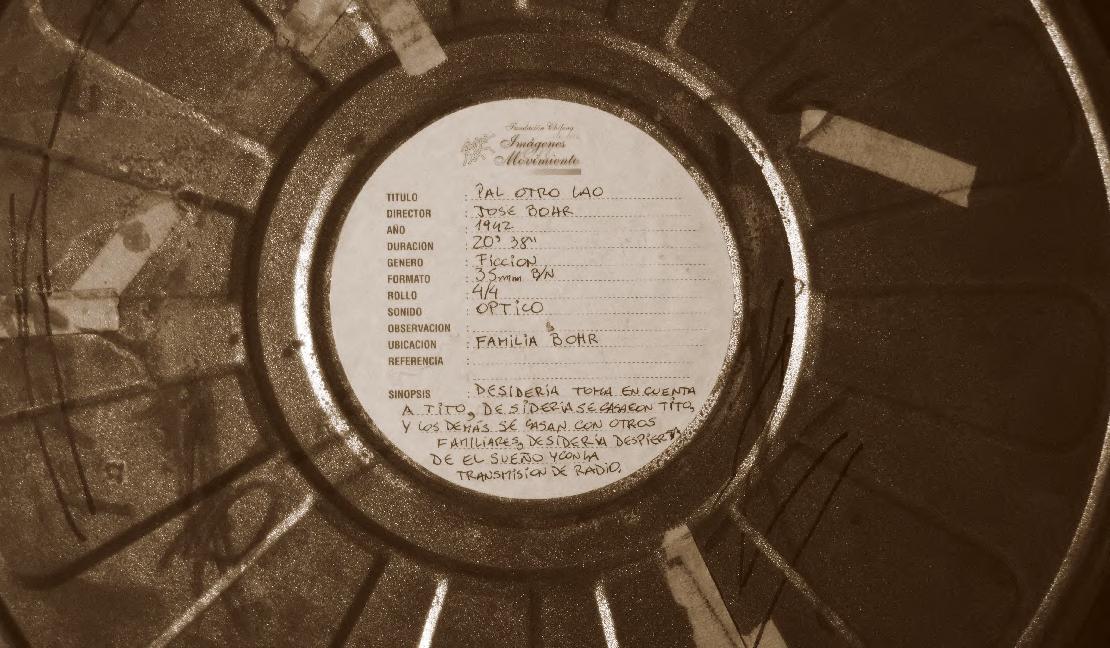 Fundación Chilena
Imágenes
Movimiento
TITULO : PAL OTRO LAO
DIRECTOR : JOSE BOHR
AÑO : 1942
DURACION : 20' 38"
GENERO : FICCION
FORMATO : 35mm B/N
ROLLO : 4/4
SONIDO : OPTICO
OBSERVACION :
UBICACION : FAMILIA BOHR
REFERENCIA :
SINOPSIS : DESIDERIA TOMA EN CUENTA
A TITO, DESIDERIA SE CASA CON TITO,
Y LOS DEMAS SE CASAN CON OTROS
FAMILIARES, DESIDERIA DESPIERTA
DE EL SUEÑO Y CON LA
TRANSMISION DE RADIO.